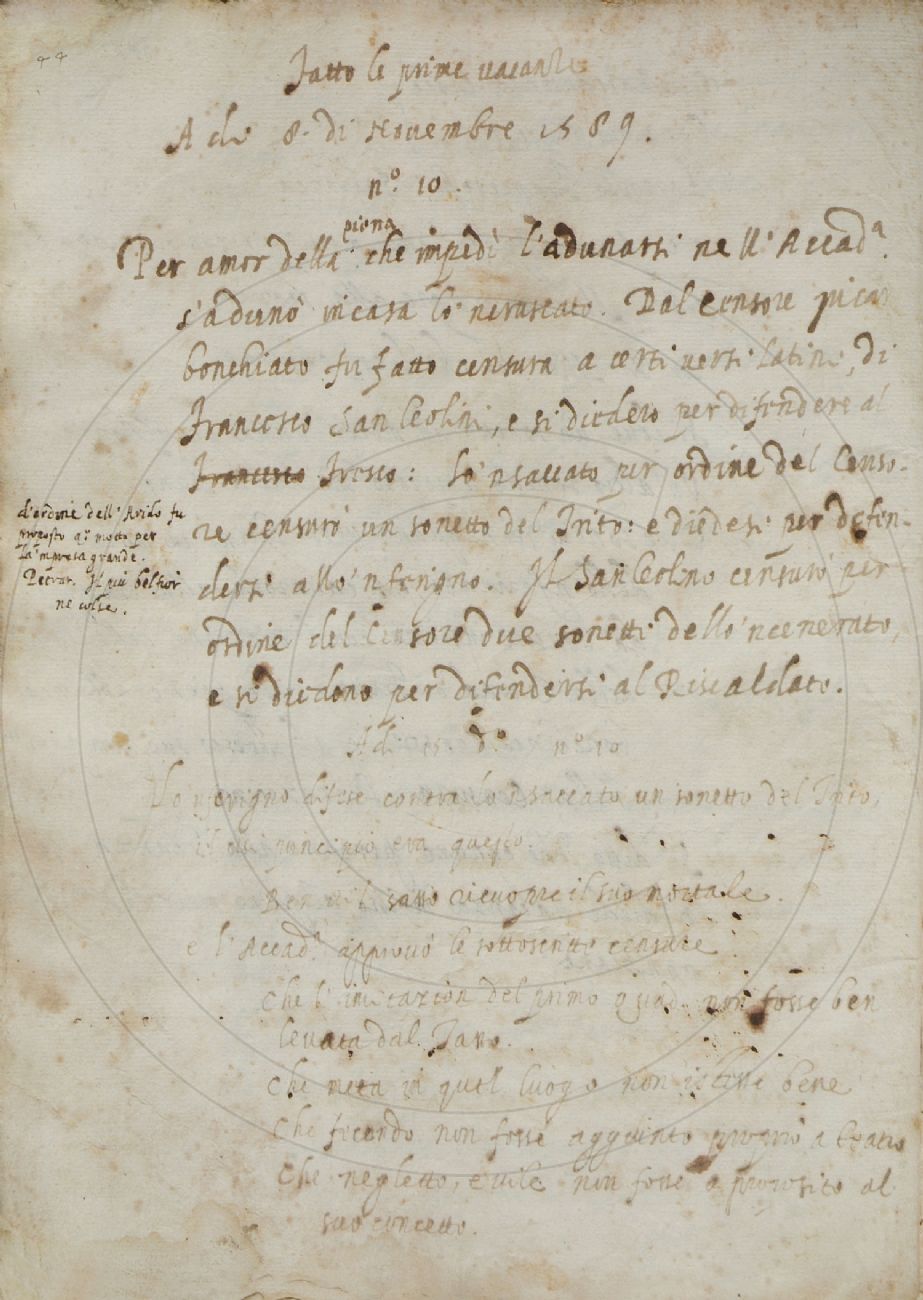 44
Fatto le prime vacante
A dì 8. di Novembre 1589.
n.º 10.
piena
Per amor della che impedì l'adunarsi nell'Accad.ª
s'adunò in casa lo 'nfuscato. Dal Censore
bonchiato fu fatto censura a certi versi latini, di
Francesco Sanleolini, e si diedero per difendere al
Francesco Fresco: lo 'nsaccato per ordine del Censo-
re censurò un sonetto del Trito: e diedesi per difen-
dersi allo 'nferigno. Il Sanleolino censurò per
ordine del Censore due sonetti dello 'ncenerato,
e si diedono per difendersi al Riscaldato.
d'ordine dell'Arido fu
proposto q.º motto per
la 'mpresa grande.
Petrar. Il più bel fior
ne colse.
Adì 15 dº nº 10
Lo 'nferigno difese contra lo 'nsaccato un sonetto del Trito,
il cui principio era questo.
Ben vil sasso ricuopre il suo mortale.
e l'Accad.ª approvò le sottoscritte censure
Che l' del primo quad. non fosse ben
levata dal Tasso.
Che meta in quel luogo non istesse bene
Che fecondo non fosse aggiunto proprio a
Che negletto, e vile non fosse a proposito al
suo concetto.